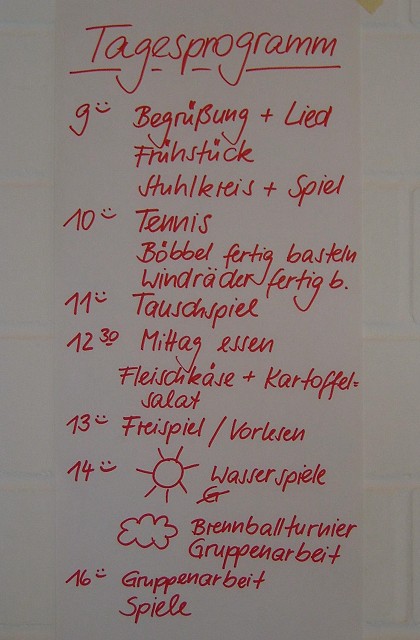 Tagesprogramm
9 Begrüßung + Lied
Frühstück
Stuhlkreis + Spiel
10 Tennis
Böbbel fertig basteln
Windräder fertig b.
11 Tauschspiel
12 30 Mittag essen
Fleischkäse + Kartoffel=
salat
13 Freispiel / Vorlesen
14 Wasserspiele
Brennballturnier
Gruppenarbeit
16 Gruppenarbeit
Spiele